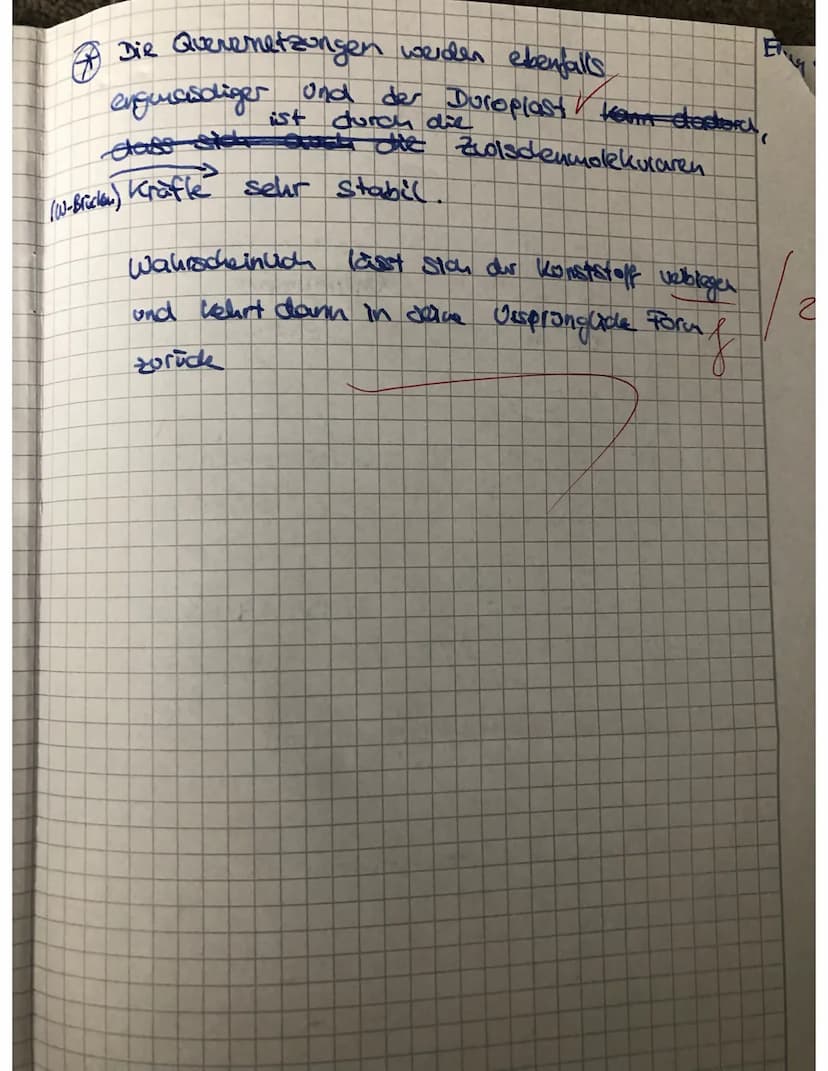 Die Quervernetzungen werden ebenfalls
engmaschiger und der Duroplast kann dadurch,
ist durch die
dass sich auch die Zwischenmolekularen
(W-Brücken) Kräfte sehr stabil.
Wahrscheinlich lässt sich der Kunststoff verbiegen
und kehrt dann in seine Ursprüngliche Form
zurück
f